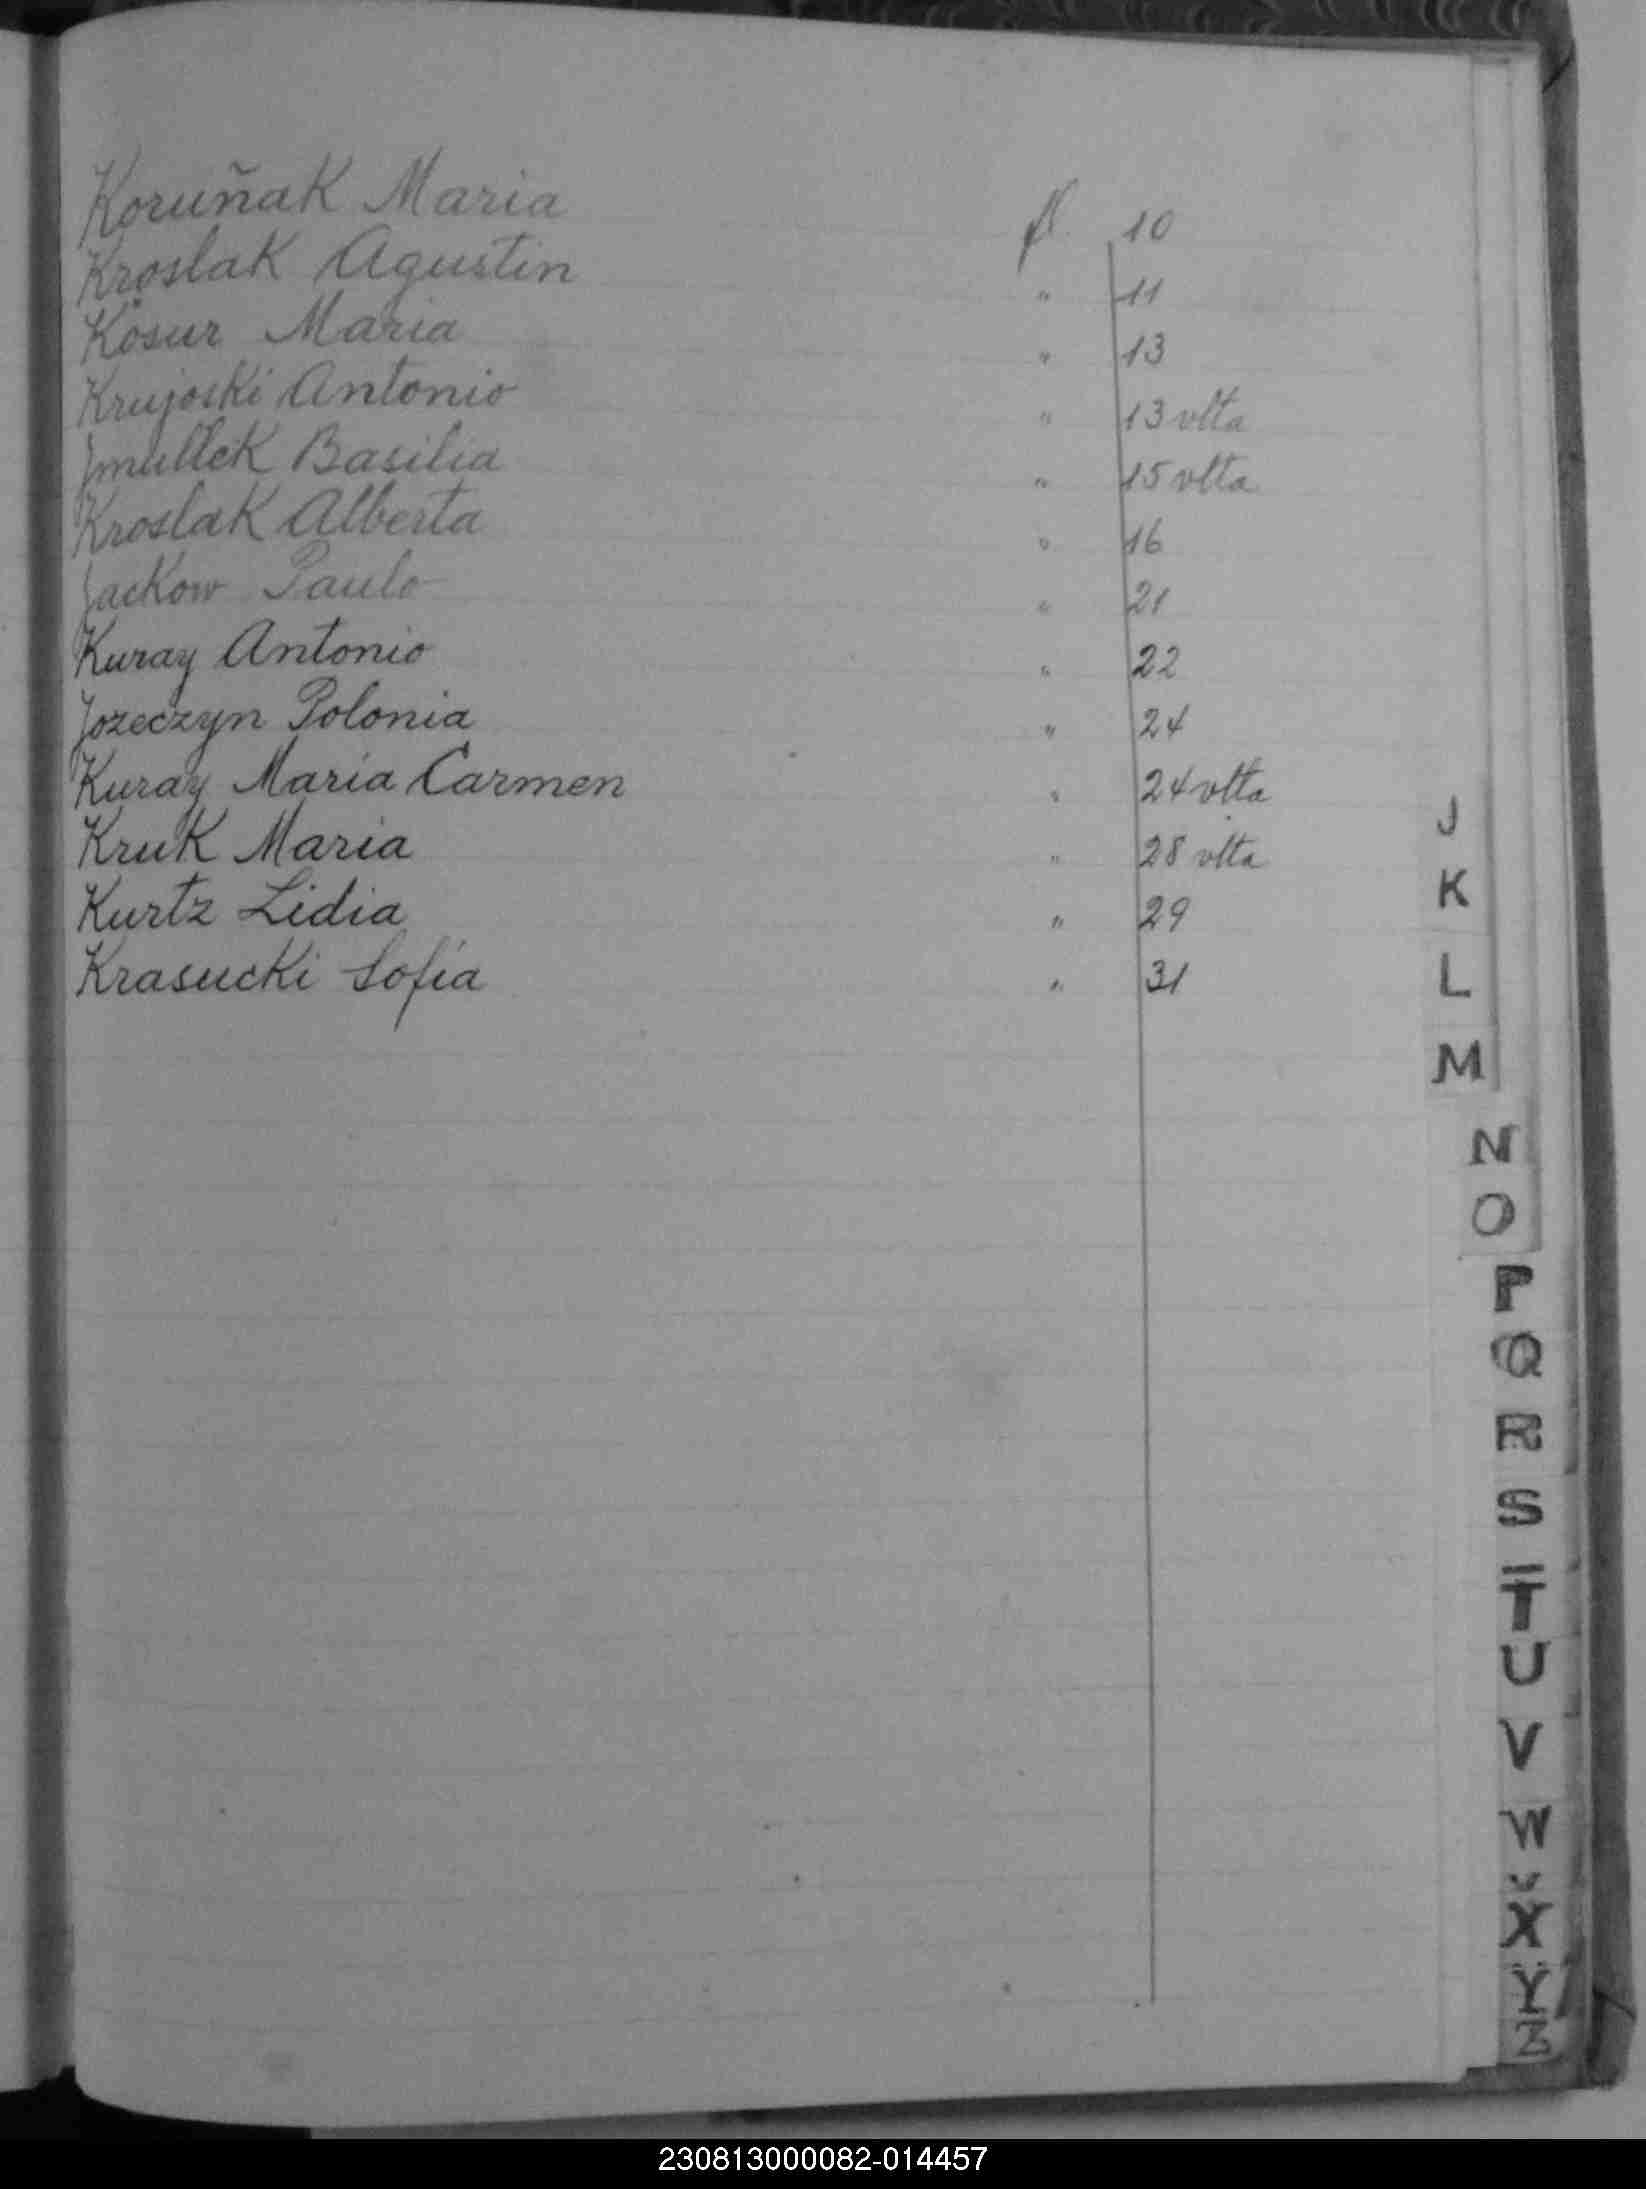 Koruñak Maria fl. 10
Kroslak Agustin " 11
Kosur Maria " 13
Krujoski Antonio " 13 vlta
Jmullek Basilia " 15 vlta
Kroslak Alberta " 16
Jackow Paulo " 21
Kuray Antonio " 22
Jozeczyn Polonia " 24
Kuray Maria Carmen " 24 vlta
Kruk Maria " 28 vlta
Kurtz Lidia " 29
Krasucki Sofía " 31
J
K
L
M
N
O
P
Q
R
S
T
U
V
W
X
Y
Z
230813000082-014457